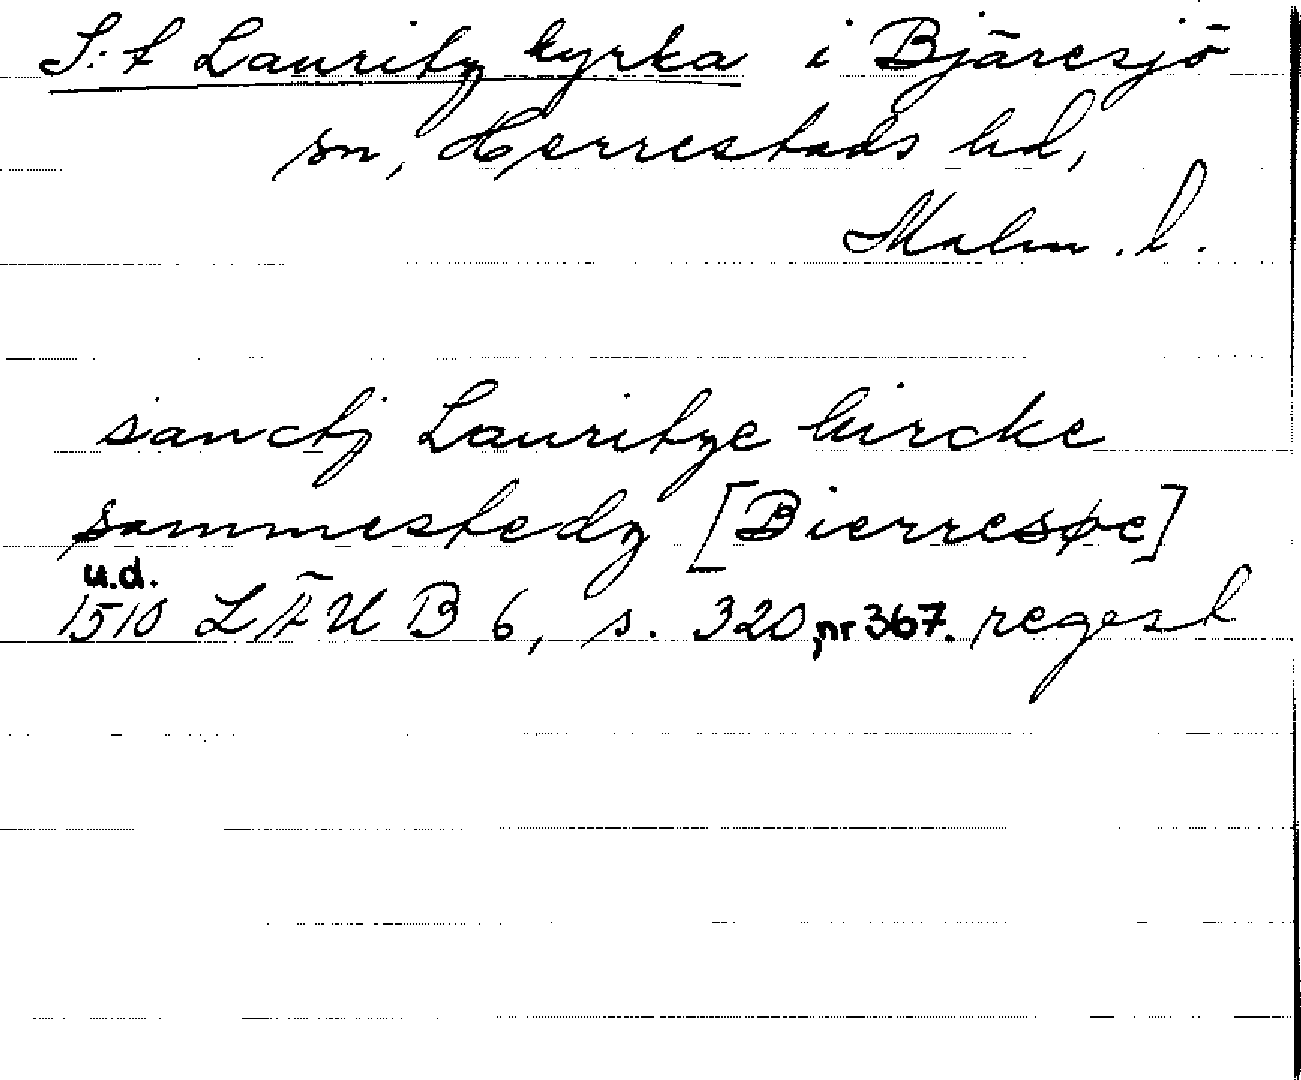 S:t Lauritz kyrka i Bjäresjö
sn, Herrestads hd,
Malm. l.
sanctj Lauritze kircke
sammestedz [Bierresøe]
u.d.
1510 LÄUB 6, s. 320, nr 367. regest